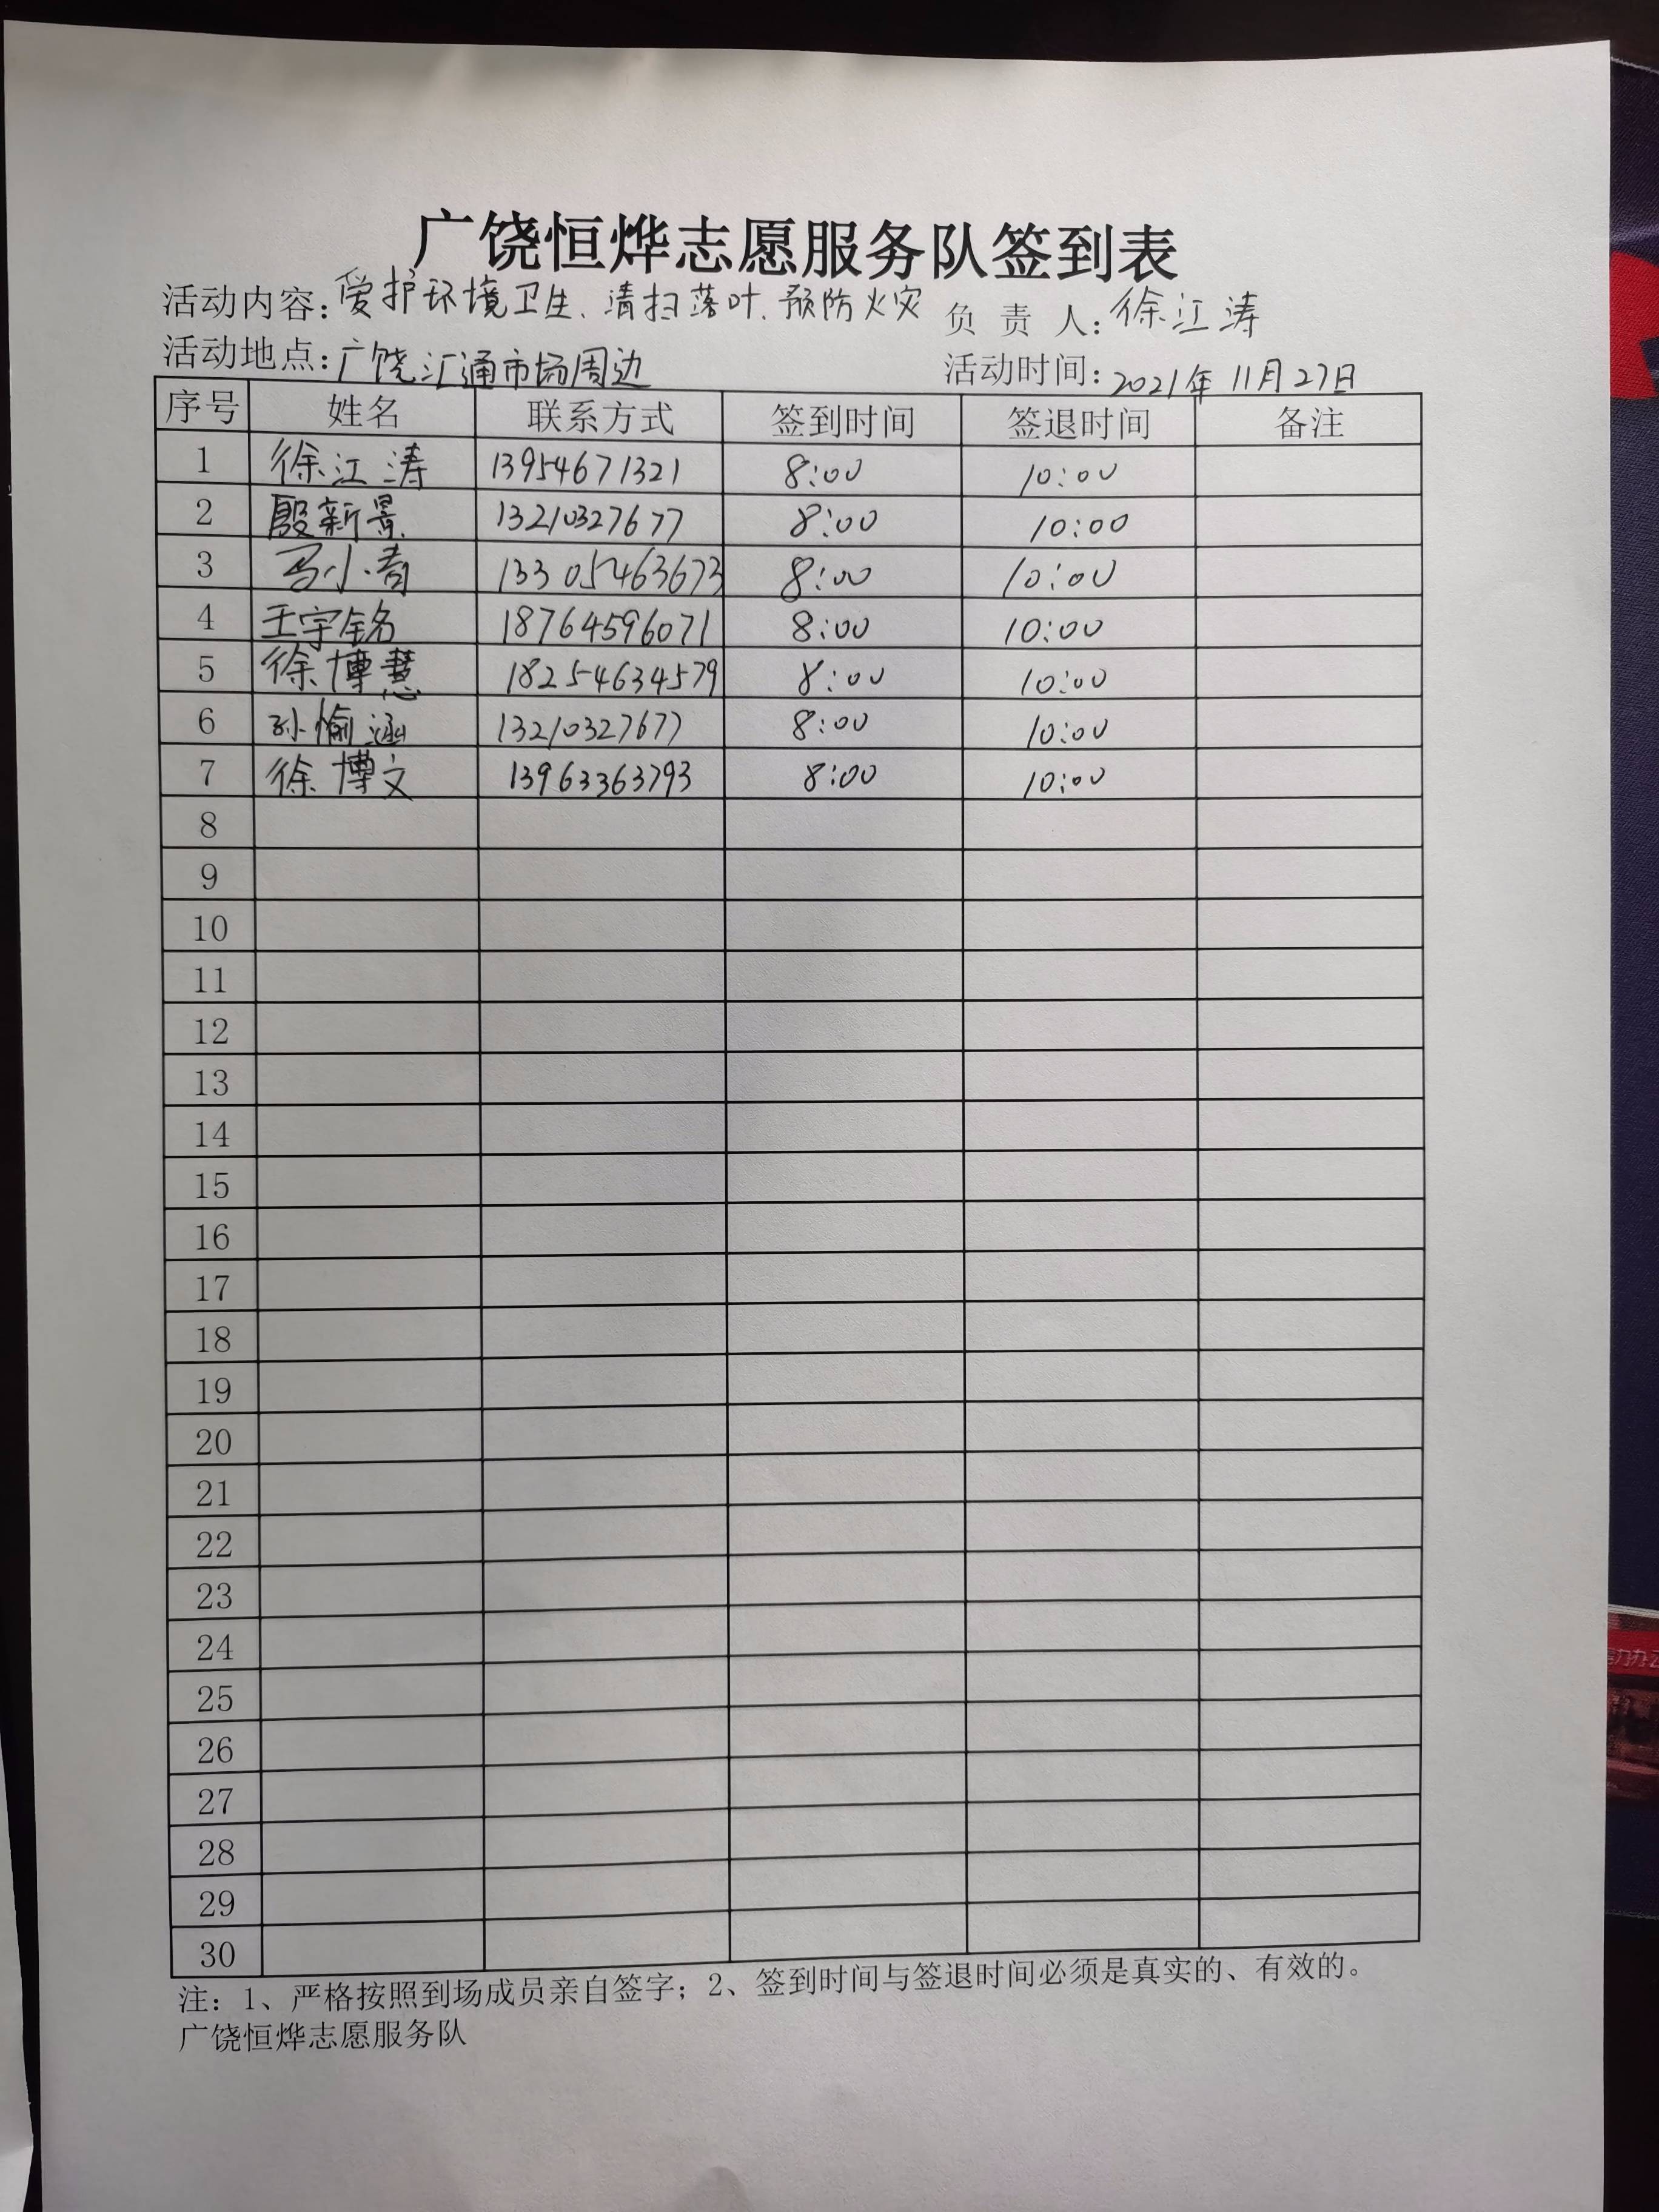 广饶恒烨志愿服务队签到表
活动内容:爱护环境卫生、清扫落叶、预防火灾 负责人:徐江涛
活动地点:广饶汇通市场周边 活动时间:2021年11月27日
序号 姓名 联系方式 签到时间 签退时间 备注
1 徐江涛 13954671321 8:00 10:00
2 殷新景 13210327677 8:00 10:00
3 马小青 13305463673 8:00 10:00
4 王宇铭 18764596071 8:00 10:00
5 徐博慧 18254634579 8:00 10:00
6 孙愉涵 13210327677 8:00 10:00
7 徐博文 13963363793 8:00 10:00
8
9
10
11
12
13
14
15
16
17
18
19
20
21
22
23
24
25
26
27
28
29
30
注：1、严格按照到场成员亲自签字；2、签到时间与签退时间必须是真实的、有效的。
广饶恒烨志愿服务队